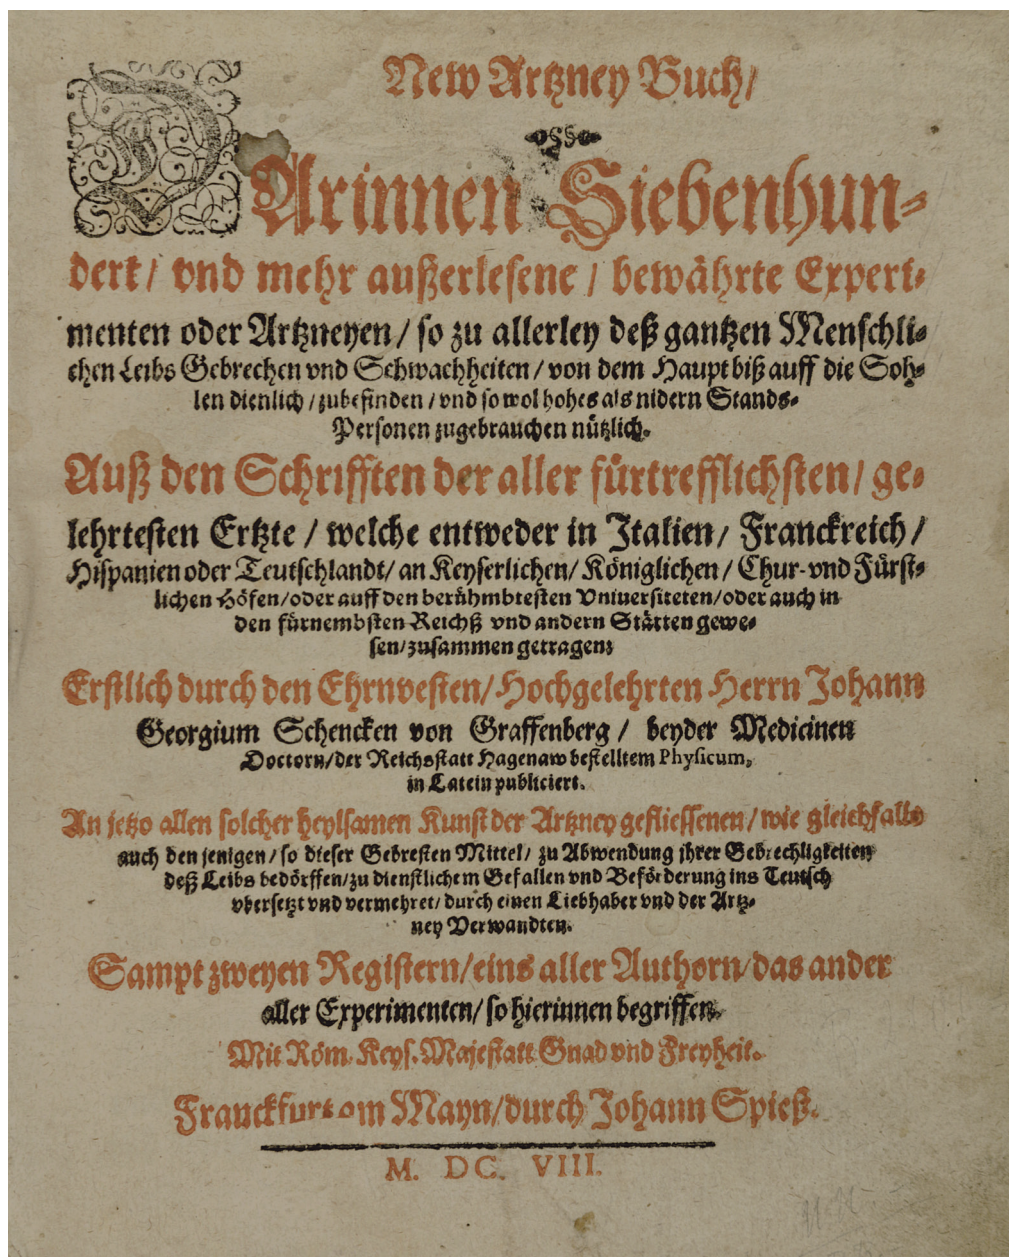 New Artzney Buch/
DArinnen Siebenhun-
dert/ vnd mehr außerlesene/ bewährte Experi-
menten oder Artzneyen/ so zu allerley deß gantzen Menschli-
chen Leibs Gebrechen vnd Schwachheiten/ von dem Haupt biß auff die Soh-
len dienlich/ zubefinden/ vnd so wol hohes als nidern Stands-
Personen zugebrauchen nützlich.
Auß den Schrifften der aller fürtrefflichsten/ ge-
lehrtesten Ertzte/ welche entweder in Italien/ Franckreich/
Hispanien oder Teutschlandt/ an Keyserlichen/ Königlichen/ Chur- vnd Fürst-
lichen Höfen/ oder auff den berühmbtesten Vniuersiteten/ oder auch in
den fürnembsten Reichß vnd andern Stätten gewe-
sen/ zusammen getragen;
Erstlich durch den Ehrnvesten/ Hochgelehrten Herrn Johann
Georgium Schencken von Graffenberg/ beyder Medicinen
Doctorn/ der Reichsstatt Hagenaw bestelltem Physicum,
in Latein publiciert.
An jetzo allen solcher heylsamen Kunst der Artzney gefliessenen/ wie gleichfalls
auch den jenigen/ so dieser Gebresten Mittel/ zu Abwendung jhrer Gebrechligkeiten
deß Leibs bedörffen/ zu dienstlichem Gefallen vnd Beförderung ins Teutsch
vbersetzt vnd vermehret/ durch einen Liebhaber vnd der Artz-
ney Verwandten.
Sampt zweyen Registern/ eins aller Authorn/ das ander
aller Experimenten/ so hierinnen begriffen.
Mit Röm. Keys. Majestatt Gnad vnd Freyheit.
Franckfurt am Mayn/ durch Johann Spieß.
M. DC. VIII.